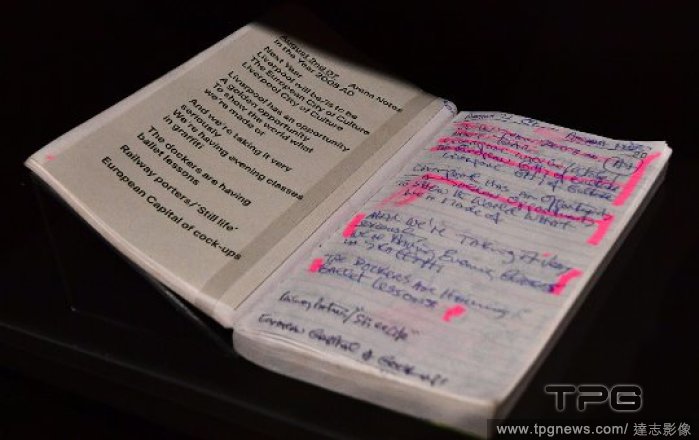 August 2nd 07 Arena Notes
In the Year 2008 AD
Next Year
Liverpool will be/is to be
The European City of Culture
Liverpool City of Culture
Liverpool has an opportunity
A golden opportunity
To show the world
we're made of what
And we're taking it very
seriously
We're having evening classes
in graffiti
The dockers are having
ballet lessons
Railway porters/'Still life'
European Capital of cock-ups
Liverpool City of Culture
Liverpool Has an Opportunity
To Show the World What
We're Made of
And We're Taking it Very
Serously
We're Having Evening Classes
in Graffiti
The Dockers Are Having
Ballet Lessons
Railway Porters/"Still Life"
European Capital of Cock-ups
TPG
www.tpgnews.com/ 達志影像